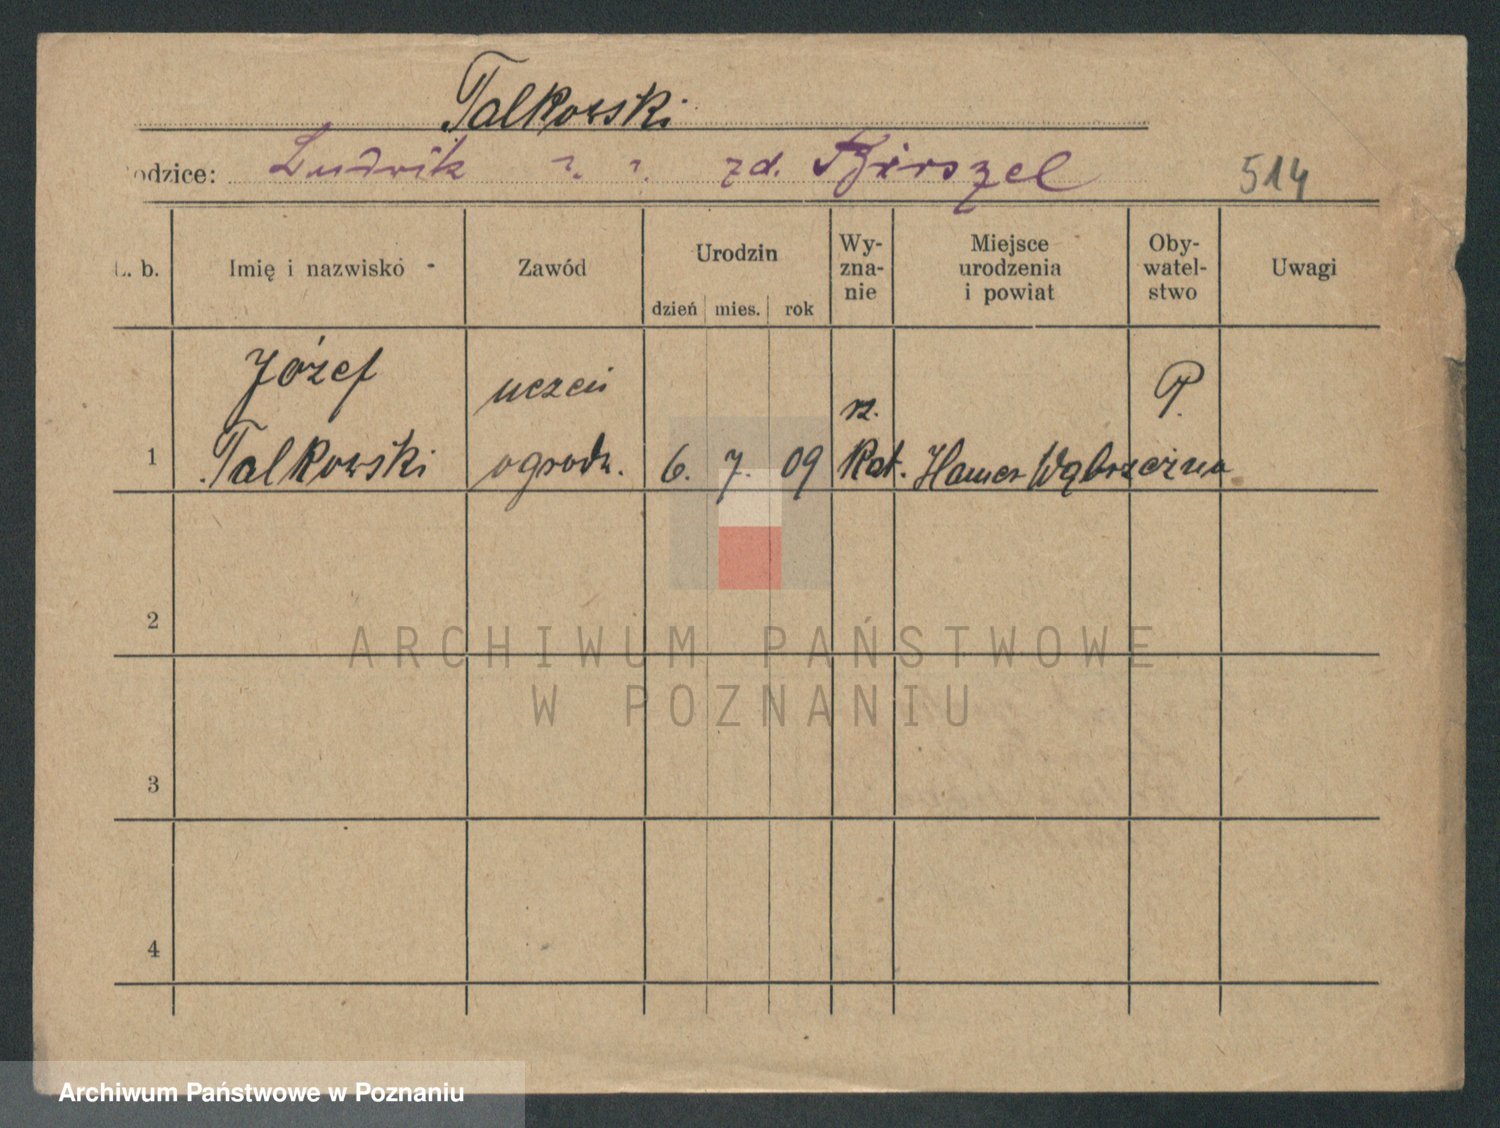 Talkowski
odzice: Ludwik ? ? zd.
514
L. b. Imię i nazwisko Zawód Urodzin dzień mies. rok Wy-zna-nie Miejsce urodzenia i powiat Oby-watel-stwo Uwagi
Józef uczeń rz. P.
1 Talkowski ogrodn. 6. 7. 09 kat. Wąbrzeźno
2
ARCHIWUM PAŃSTWOWE
W POZNANIU
3
4
Archiwum Państwowe w Poznaniu